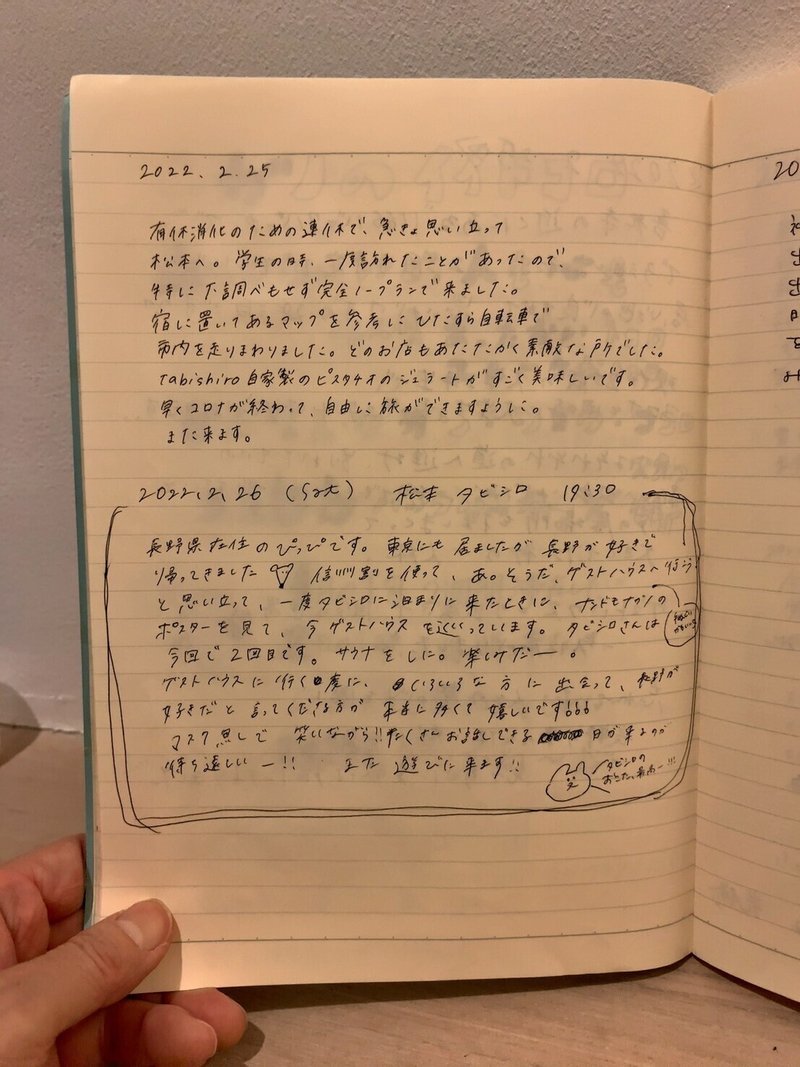 2022. 2. 25
有休消化のための連休で、急きょ思い立って
松本へ。学生の時、一度訪れたことがあったので、
特に下調べもせず完全ノープランで来ました。
宿に置いてあるマップを参考にひたすら自転車で
市内を走りまわりました。どのお店もあたたかく素敵な所でした。
tabishiro自家製のピスタチオのジェラートがすごく美味しいです。
早くコロナが終わって、自由に旅ができますように。
また来ます。
2022, 2, 26 (Sat) 松本 タビシロ 19:30
長野県在住のぴっぴです。東京にも居ましたが長野が好きで
帰ってきました 信州割を使って、あ。そうだ、ゲストハウスへ行こう
と思い立って、一度タビシロに泊まりに来たときに、
ポスターを見て、今ゲストハウスを巡っています。タビシロさんは
今回で2回目です。サウナをしに。楽しみだー。
ゲストハウスに行く度に、いろいろな方に出会って、長野が
好きだと言ってくださる方が本当に多くて嬉しいです
マスク無しで 笑いながら!!たくさんお話しできる 日が来るのが
待ち遠しいー!! また遊びに来ます!!
タビシロの
20